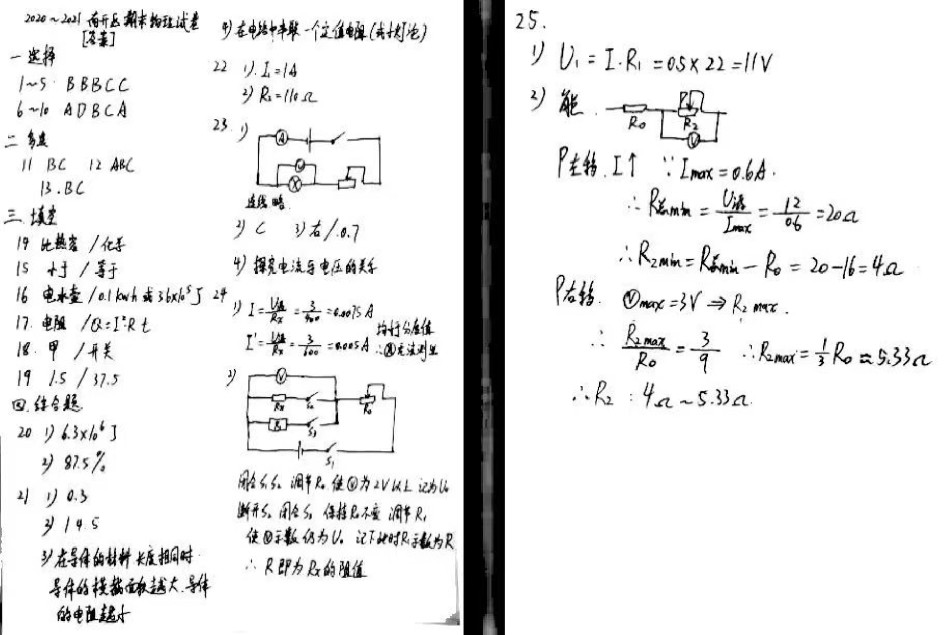 2020~2021 南开区期末物理试卷
[答案]
一 选择
1~5 BBBCC
6~10 ADBCA
二 多选
11 BC 12 ABC
13. BC
三. 填空
14 比热容 / 化学
15 小于 / 等于
16 电水壶 / 0.1 kwh 或 3.6x10⁵ J
17. 电阻 / Q=I²Rt
18. 甲 / 开关
19 1.5 / 37.5
四. 综合题
20 1) 6.3x10⁶ J
2) 87.5%
21 1) 0.3
2) 4.5
3) 在导体的材料 长度相同时
导体的横截面积越大, 导体
的电阻越小
4) 在电路中串联一个定值电阻 (或小灯泡)
22 1). I=1A
2) R₂=110Ω
23. 1)
A
V
X
连线略.
2) C 3) 右 / 0.7
4) 探究电流与电压的关系
24
1) I = U源/Rx = 3/400 = 0.0075 A
I' = U源/Rx = 3/600 = 0.005 A
均小于分度值
∴Ⓐ无法测量
2)
V
Rx S₂
R₁ S₃
R₀
S₁
闭合S₁S₂ 调节R₀ 使Ⓥ为2V以上 记为U₀
断开S₂ 闭合S₃ 保持R₀不变 调节R₁
使Ⓥ示数仍为U₀ 记下此时R₁示数为R
∴ R即为Rx的阻值
25.
1) U₁ = I·R₁ = 0.5 x 22 = 11V
2) 能.
R₀ P R₂
V
P左移. I↑ ∵ Imax = 0.6A.
∴ R总min = U源/Imax = 12/0.6 = 20Ω
∴ R₂min = R总min - R₀ = 20-16 = 4Ω
P右移. Ⓥmax = 3V ⇒ R₂ max.
∴ R₂max/R₀ = 3/9 ∴ R₂max = 1/3 R₀ ≈ 5.33Ω
∴ R₂ : 4Ω ~ 5.33Ω.